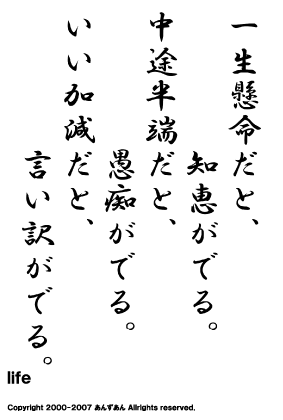 一生懸命だと、
知恵がでる。
中途半端だと、
愚痴がでる。
いい加減だと、
言い訳がでる。
life
Copyright 2000-2007 あんずあん Allrights reserved.